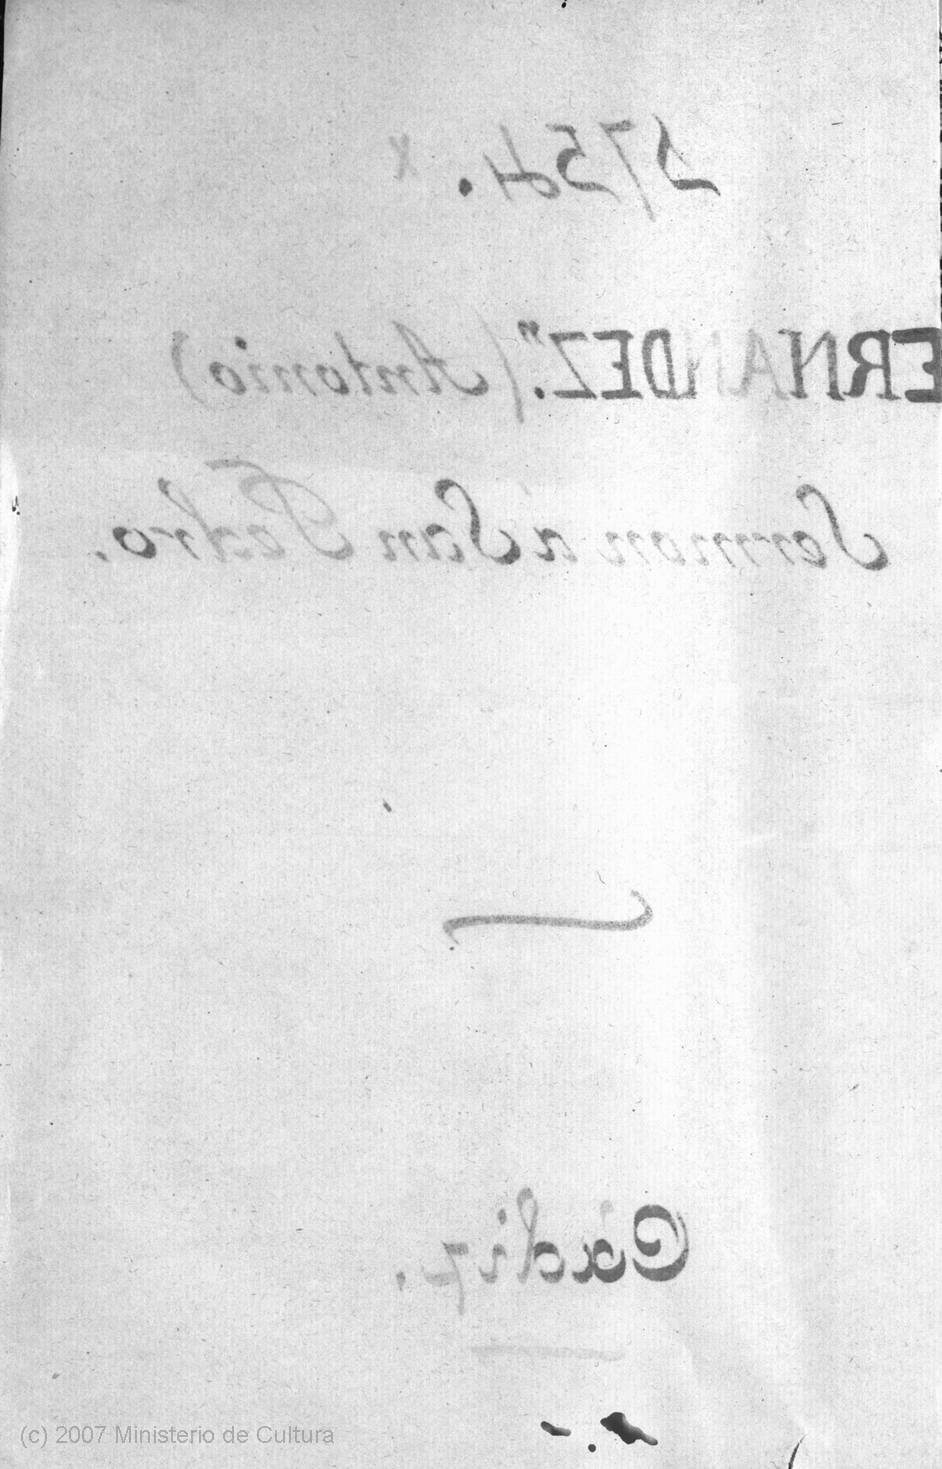 1754. x
ERNANDEZ." (Antonio)
Sermon a San Pedro.
Cadiz.
(c) 2007 Ministerio de Cultura